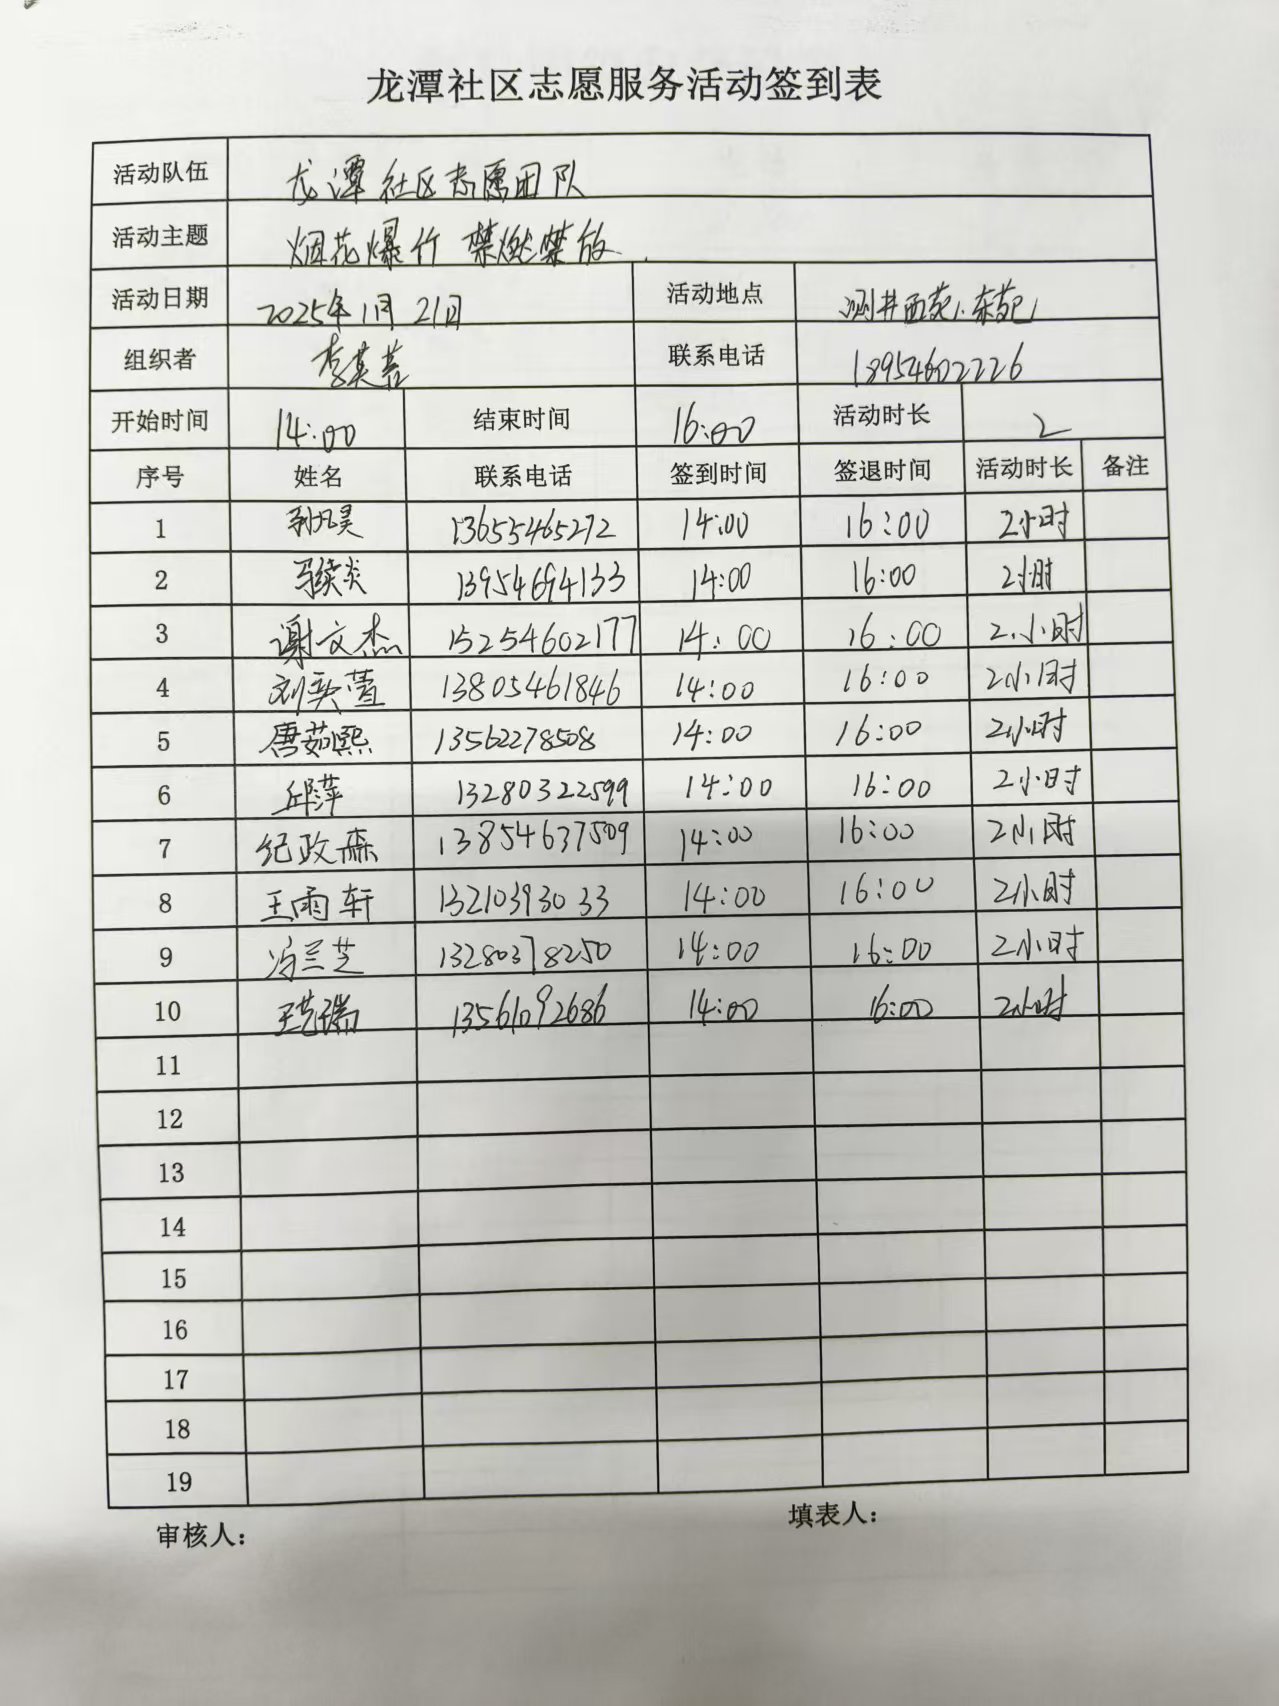 龙潭社区志愿服务活动签到表
活动队伍 龙潭社区志愿团队
活动主题 烟花爆竹 禁燃禁放
活动日期 2025年1月21日 活动地点 测井西苑、东苑
组织者 李英 联系电话 18954602226
开始时间 14:00 结束时间 16:00 活动时长 2
序号 姓名 联系电话 签到时间 签退时间 活动时长 备注
1 孙凡昊 13655465272 14:00 16:00 2小时
2 马续炎 13954694133 14:00 16:00 2小时
3 谢文杰 15254602177 14:00 16:00 2小时
4 刘奕萱 13805461846 14:00 16:00 2小时
5 唐茹熙 13562278508 14:00 16:00 2小时
6 邱萍 13280322599 14:00 16:00 2小时
7 纪政森 13854637509 14:00 16:00 2小时
8 王雨轩 13210393033 14:00 16:00 2小时
9 冯兰芝 13280378250 14:00 16:00 2小时
10 王艺瑞 13561092686 14:00 16:00 2小时
11
12
13
14
15
16
17
18
19
审核人： 填表人：